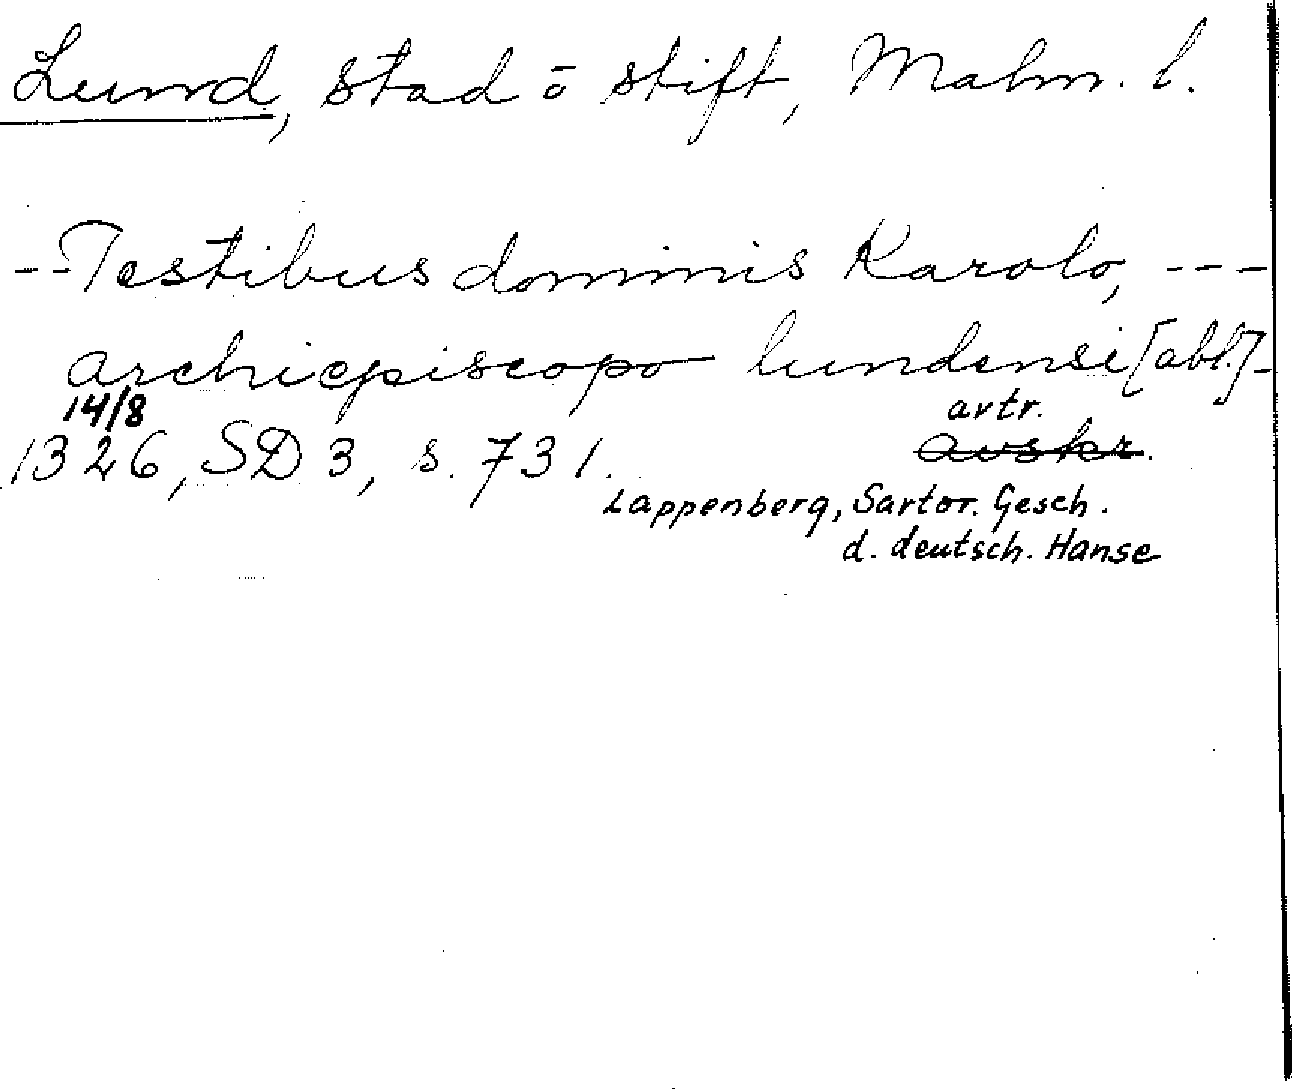 Lund, stad ō stift, Malm. l.
--Testibus dominis Karolo, ---
archiepiscopo lundensi [abl.]-
14/8 avtr.
1326, SD 3, s. 731. avskr.
Lappenberg, Sartor. Gesch.
d. deutsch. Hanse